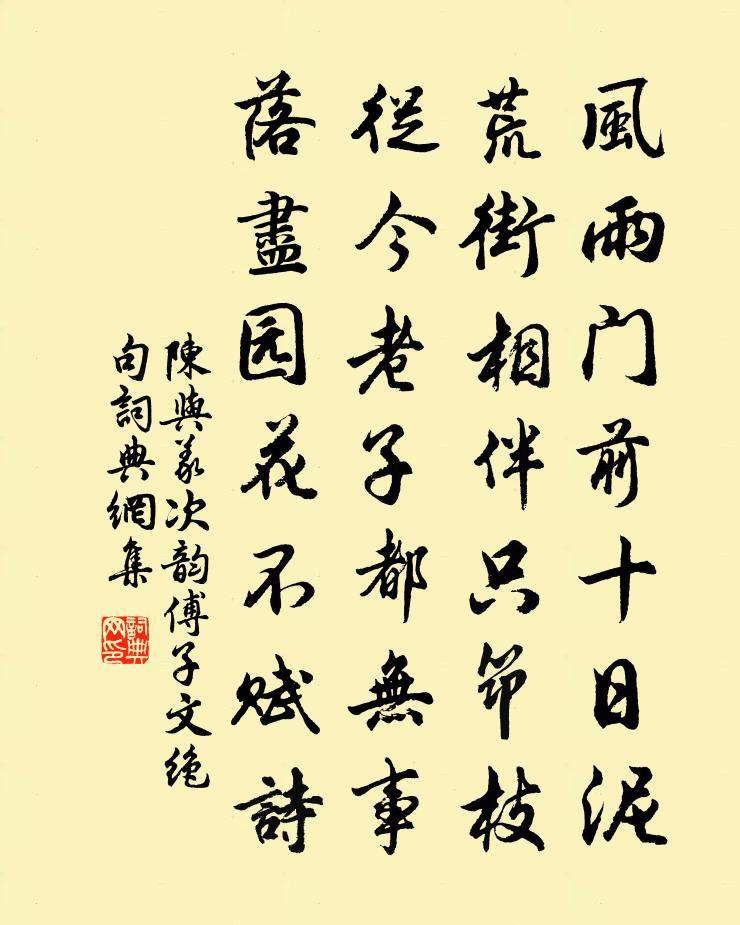 風雨门前十日泥
荒街相伴只笻枝
從今老子都無事
落盡园花不赋詩
陳與義次韵傅子文絶
句詞典網集
詞典网印